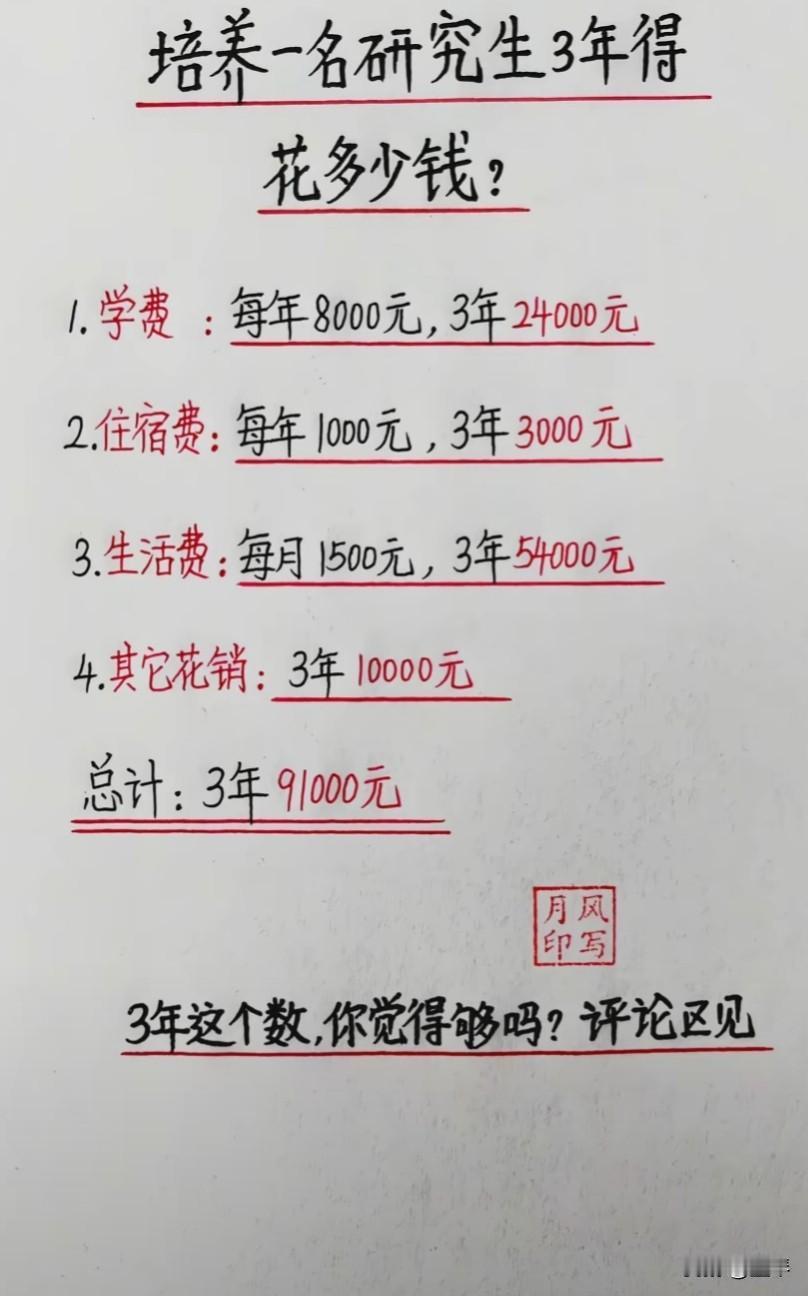 培养一名研究生3年得
花多少钱?
1.学费：每年8000元,3年24000元
2.住宿费:每年1000元,3年3000元
3.生活费:每月1500元,3年54000元
4.其它花销:3年10000元
总计:3年91000元
月风
印写
3年这个数,你觉得够吗?评论区见